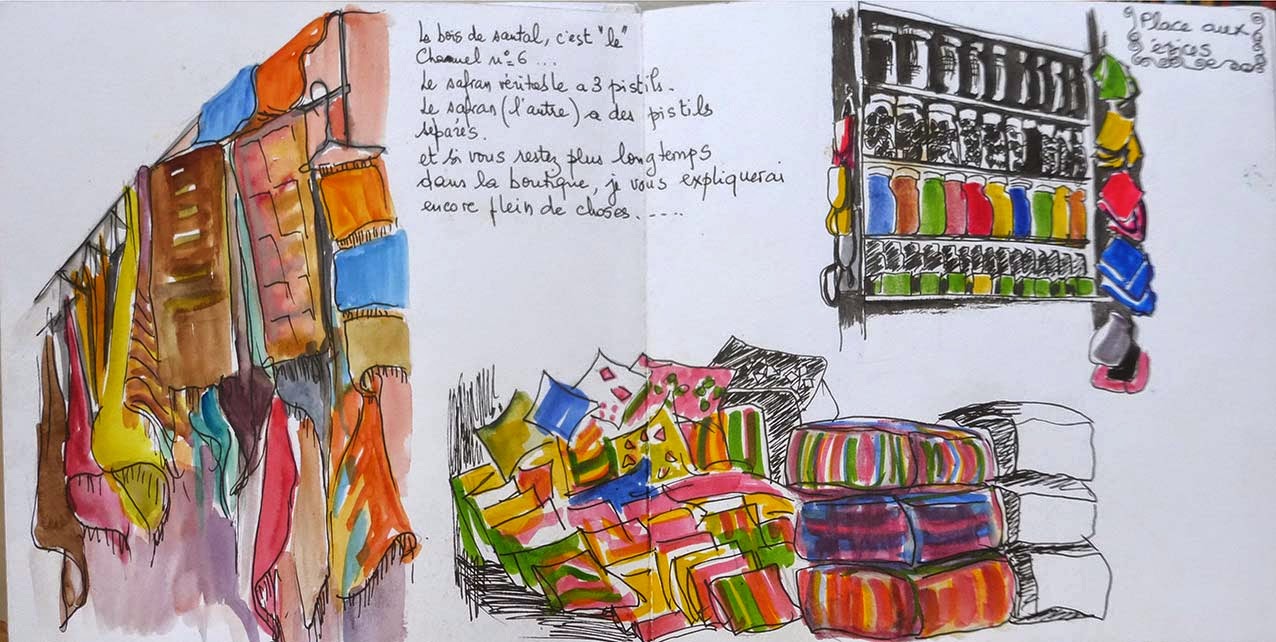 Le bois de santal, c'est "le"
Channel n°6 ...
Le safran véritable a 3 pistils.
Le safran (l'autre) a des pistils
séparés.
et si vous restez plus longtemps
dans la boutique, je vous expliquerai
encore plein de choses. ....
Place aux
épices